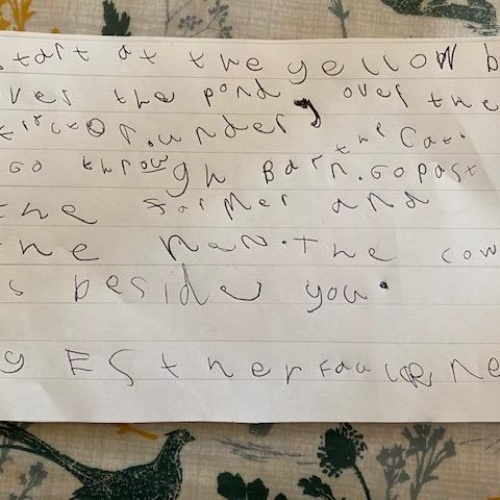 start at the yellow b
ver the pond, over the
tractor. under the Cat.
Go through Barn. Go past
the farmer and
the hen. the cow
s beside you.
y Esther Faulkne